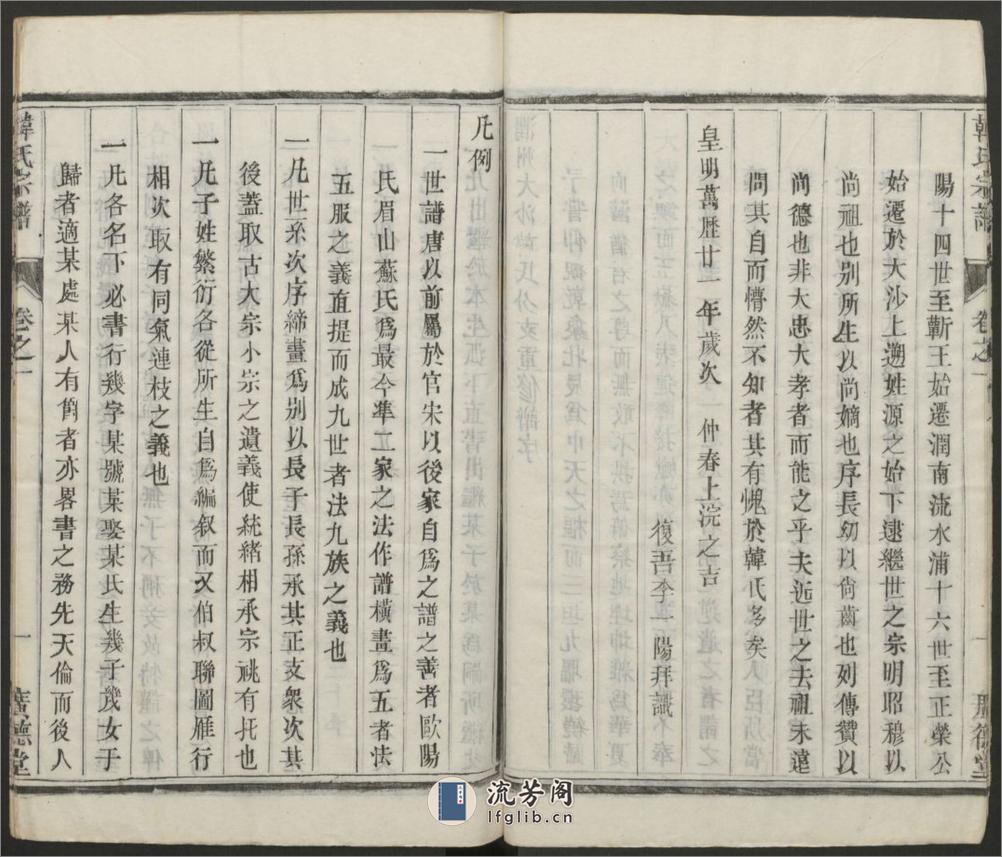 韓氏宗譜 卷之一
陽十四世至蘄王始遷潤南流水浦十六世至正榮公
始遷於大沙上遡姓源之始下逮繼世之宗明昭穆以
尚祖也別所生以尚嫡也序長幼以尙齒也列傳贊以
尚德也非大忠大孝者而能之乎夫近世之去祖未遠
問其自而懵然不知者其有愧於韓氏多矣
皇明萬歷廿一年歲次 仲春上浣之吉
復吾李一陽拜識
凡例
一世譜唐以前屬於官宋以後家自爲之譜之善者歐陽
氏眉山蘇氏爲最今準二家之法作譜橫畫爲五者法
五服之義直提而成九世者法九族之義也
一凡世系次序締畫爲別以長子長孫承其正支衆次其
後蓋取古大宗小宗之遺義使統緒相承宗祧有托也
一凡子姓繁衍各從所生自爲編叙而又伯叔聯圖雁行
相次取有同氣連枝之義也
一凡各名下必書行幾字某號某娶某氏生幾子幾女于
歸者適某處某人有舊者亦畧書之務先天倫而後人
韓氏宗譜 卷之一 一 廣德堂
流芳阁
lfglib.cn